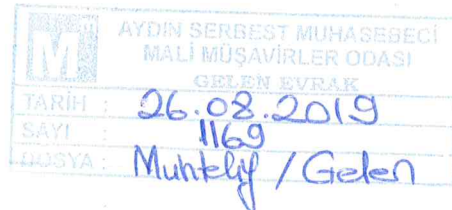 M
AYDIN SERBEST MUHASEBECİ
MALİ MÜŞAVİRLER ODASI
GELEN EVRAK
TARİH : 26.08.2019
SAYI : 1169
DOSYA : Muhtelif / Gelen